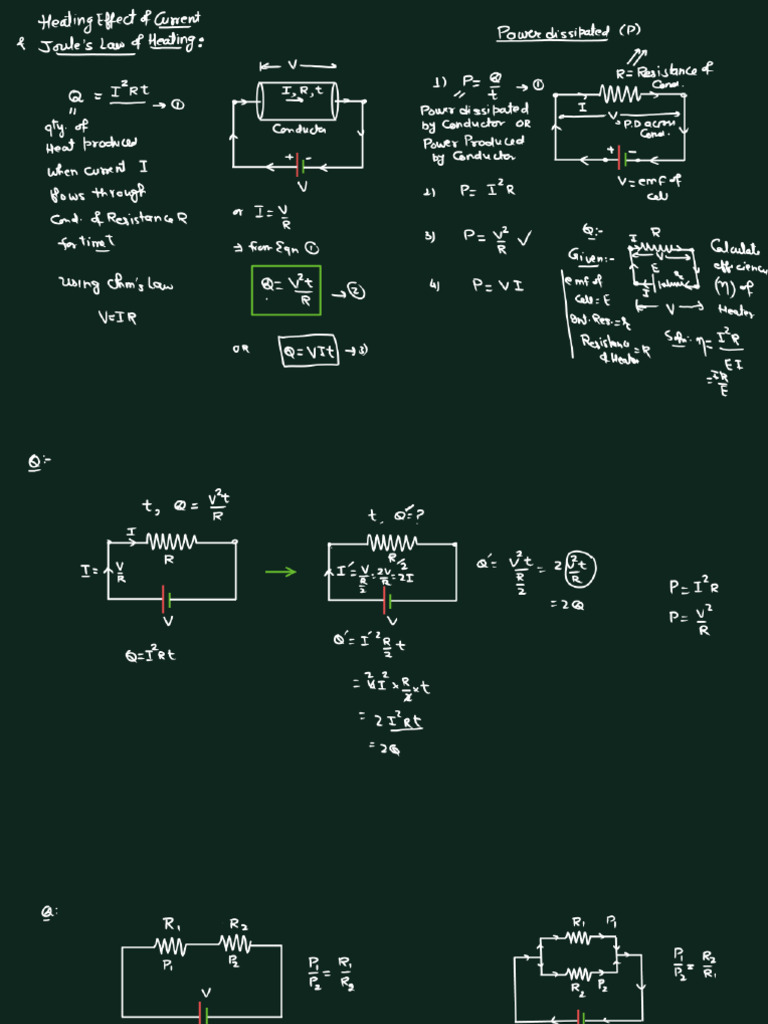 Heating Effect of Current
& Joule's Law of Heating:
Q = I²Rt → ①
"
qty. of
Heat produced
when current I
flows through
Cond. of Resistance R
for time T
Using Ohm's Law
V=IR
V
I, R, t
Conductor
+ -
V
or I = V/R
⇒ from Eqn ①
Q = V²t/R → ②
OR Q = VIt → 3)
Power dissipated (P)
1) P = Q/t → ①
Power dissipated
by Conductor OR
Power Produced
by Conductor
2) P = I²R
3) P = V²/R ✓
4) P = VI
R = Resistance of
Cond.
I
V → P.D across
Cond.
+ -
V = emf of
cell
Q:-
Given:-
emf of
cell = E
Int. Res. = r
Resistance
of Heater = R
I R
V
E r
I
V
Calculate
efficiency
(η) of
Heater
Soln: η = I²R/EI
= IR/E
Q:-
t, Q = V²t/R
I
R
I = V/R
V
Q = I²Rt
t, Q' = ?
R/2
I' = V/(R/2) = 2V/R = 2I
V
Q' = I'² R/2 t
= 4I² × R/2 × t
= 2 I²Rt
= 2Q
Q' = V²t/(R/2) = 2 (V²t/R)
= 2Q
P = I²R
P = V²/R
Q:
R₁ R₂
P₁ P₂
V
P₁/P₂ = R₁/R₂
R₁ P₁
R₂ P₂
P₁/P₂ = R₂/R₁